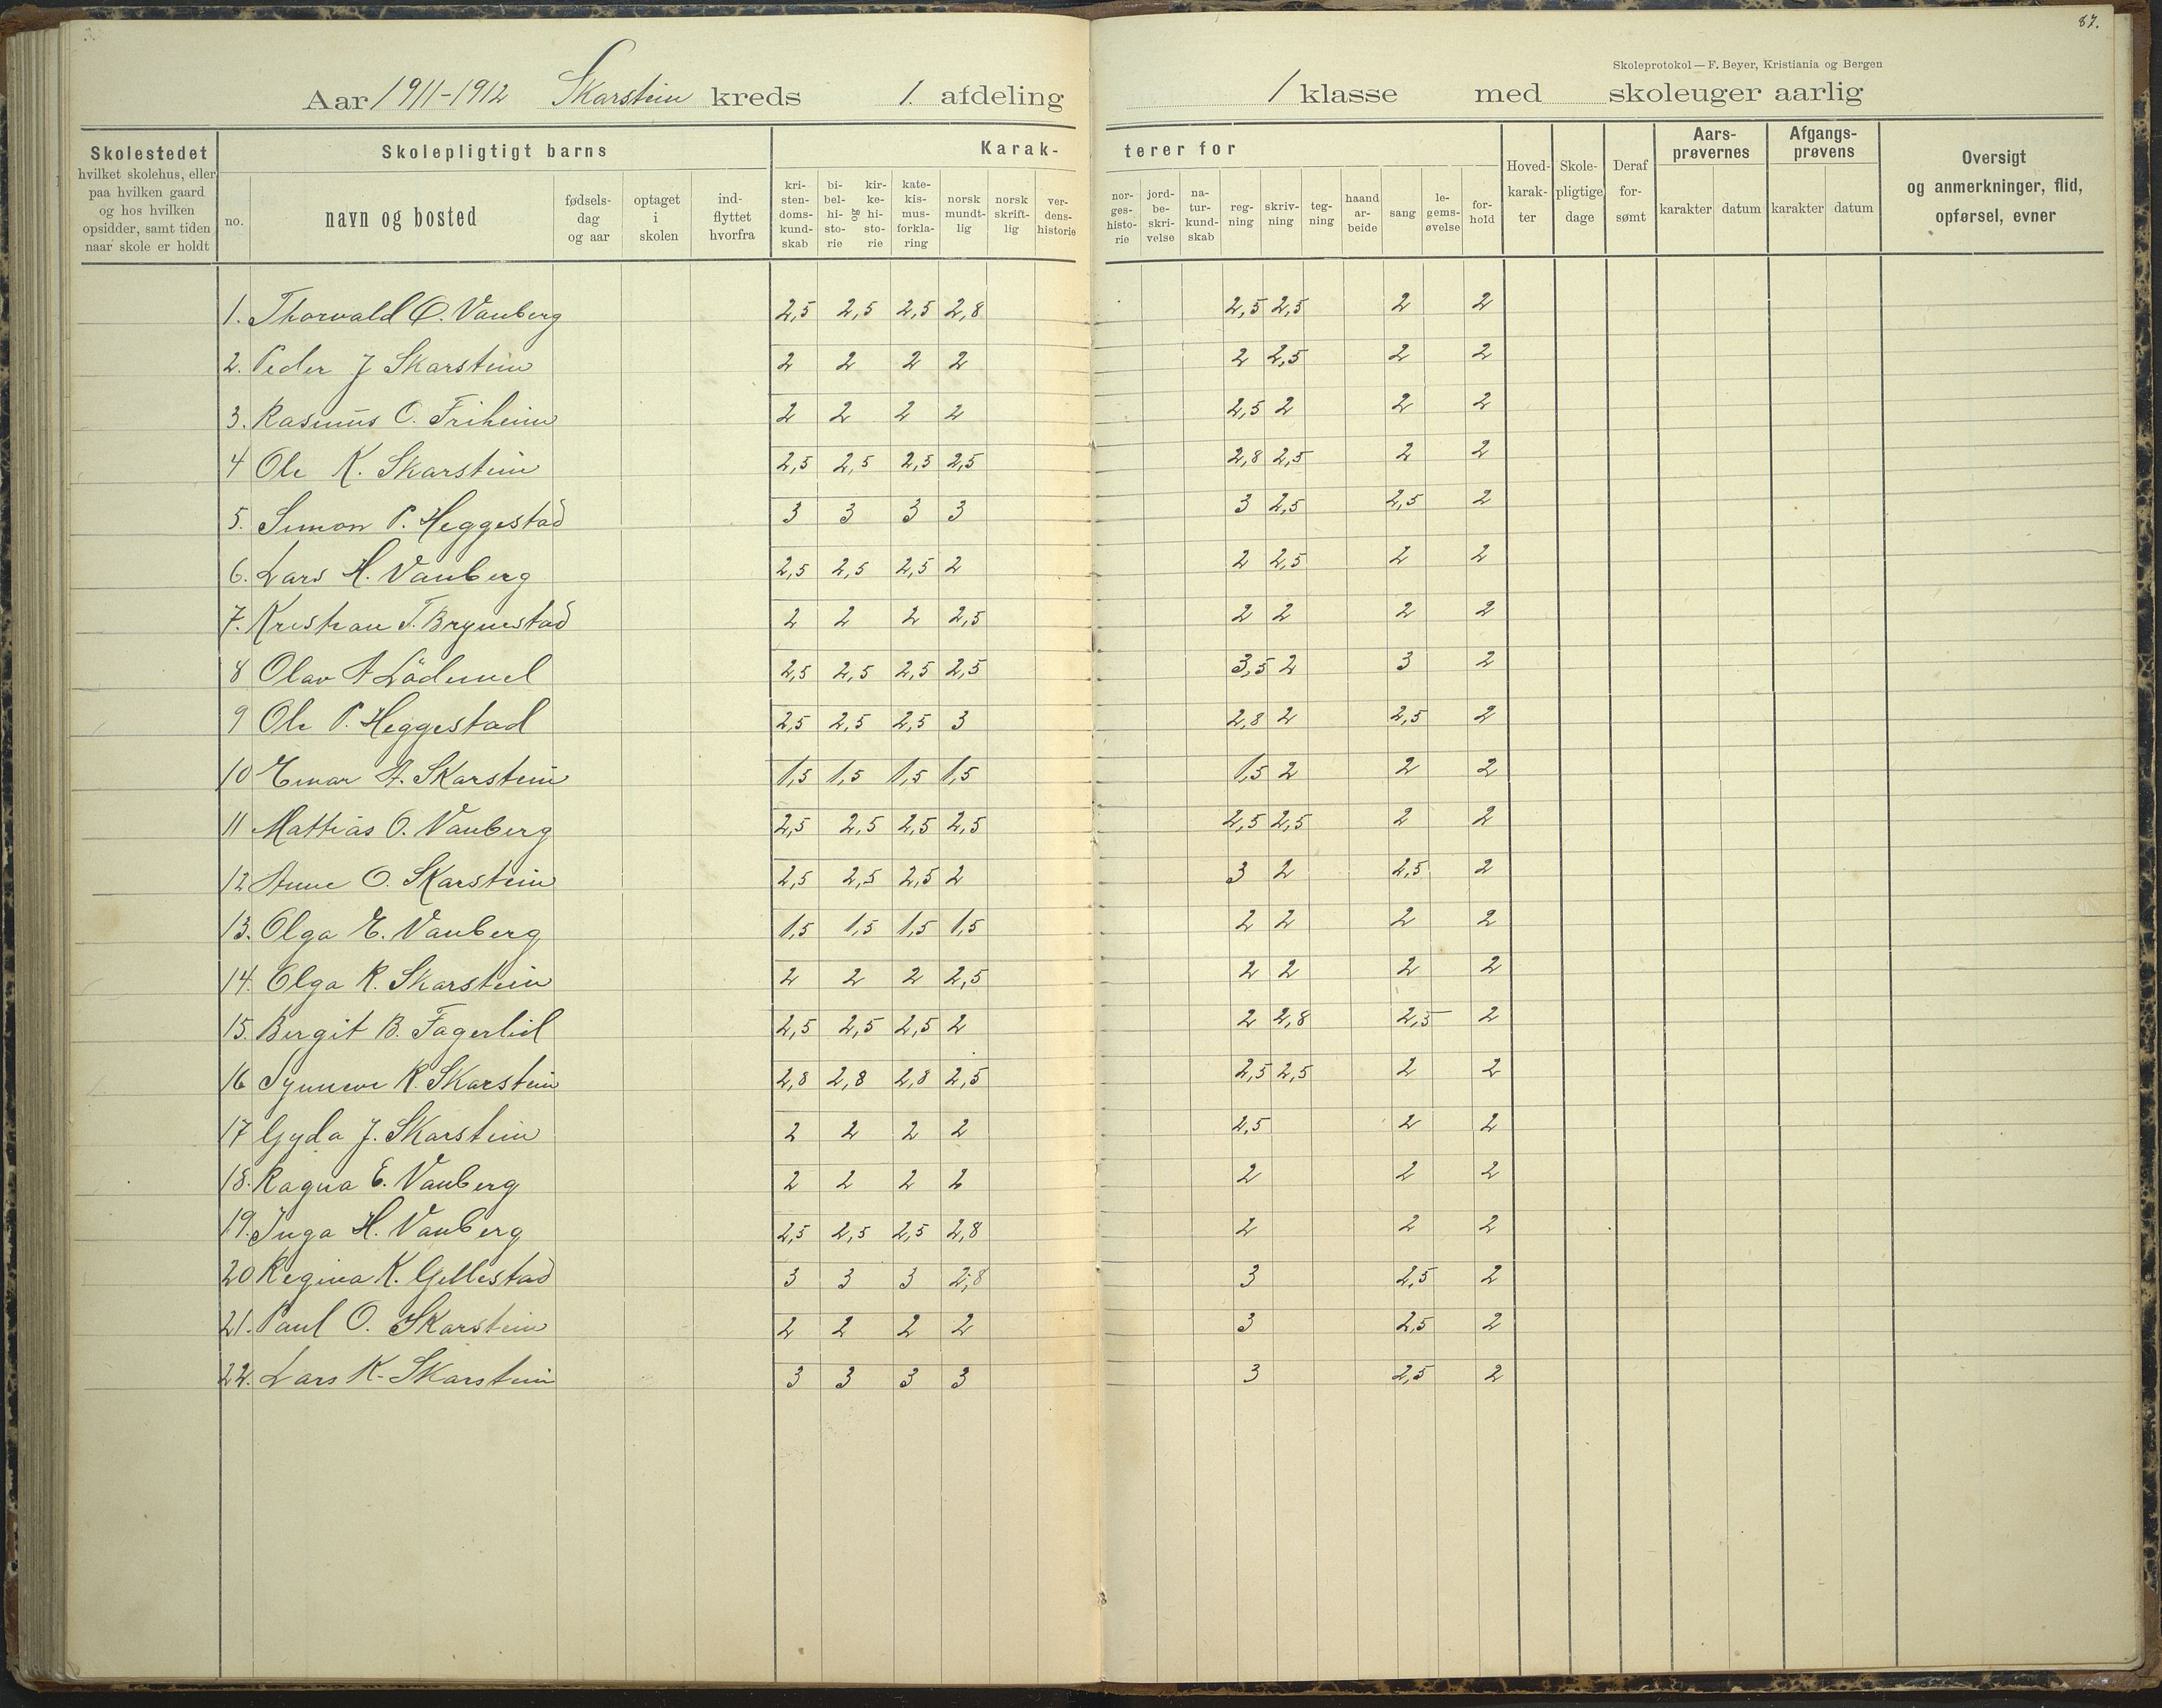 87.
Skoleprotokol — F. Beyer, Kristiania og Bergen
Aar 1911-1912 Skarstein kreds 1. afdeling 1 klasse med skoleuger aarlig
Skolestedet hvilket skolehus, eller paa hvilken gaard og hos hvilken opsidder, samt tiden naar skole er holdt
Skolepligtigt barns
no. navn og bosted fødselsdag og aar optaget i skolen indflyttet hvorfra
Karakterer for
kristendomskundskab bibelhistorie og kirkehistorie katekismusforklaring norsk mundtlig norsk skriftlig verdenshistorie norgeshistorie jordbeskrivelse naturkundskab regning skrivning tegning haandarbeide sang legemsøvelse forhold
Hovedkarakter Skolepligtige dage Deraf forsømt
Aarsprøvernes karakter datum Afgangsprøvens karakter datum
Oversigt og anmerkninger, flid, opførsel, evner
1. Thorvald O. Vanberg 2,5 2,5 2,5 2,8 2,5 2,5 2 2
2. Peder J Skarstein 2 2 2 2 2 2,5 2 2
3. Rasmus O. Friheim 2 2 2 2 2,5 2 2 2
4 Ole K. Skarstein 2,5 2,5 2,5 2,5 2,8 2,5 2 2
5. Simon P. Heggestad 3 3 3 3 3 2,5 2,5 2
6. Lars H. Vanberg 2,5 2,5 2,5 2 2 2,5 2 2
7. Kristian T. Brynestad 2 2 2 2,5 2 2 2 2
8 Olav A Lödemel 2,5 2,5 2,5 2,5 3,5 2 3 2
9 Ole P. Heggestad 2,5 2,5 2,5 3 2,8 2 2,5 2
10 Einar A. Skarstein 1,5 1,5 1,5 1,5 1,5 2 2 2
11 Mattias O. Vanberg 2,5 2,5 2,5 2,5 2,5 2,5 2 2
12 Anne O. Skarstein 2,5 2,5 2,5 2 3 2 2,5 2
13. Olga E. Vanberg 1,5 1,5 1,5 1,5 2 2 2 2
14. Olga R. Skarstein 2 2 2 2,5 2 2 2 2
15. Bergit B. Fagerlid 2,5 2,5 2,5 2 2 2,8 2,5 2
16 Synneve K. Skarstein 2,8 2,8 2,8 2,5 2,5 2,5 2 2
17 Gyda J. Skarstein 2 2 2 2 2,5 2 2
18. Ragna E. Vanberg 2 2 2 2 2 2 2
19. Inga H. Vanberg 2,5 2,5 2,5 2,8 2 2 2
20 Regina K. Gillestad 3 3 3 2,8 3 2,5 2
21. Paul O. Skarstein 2 2 2 2 3 2,5 2
22. Lars K. Skarstein 3 3 3 3 3 2,5 2